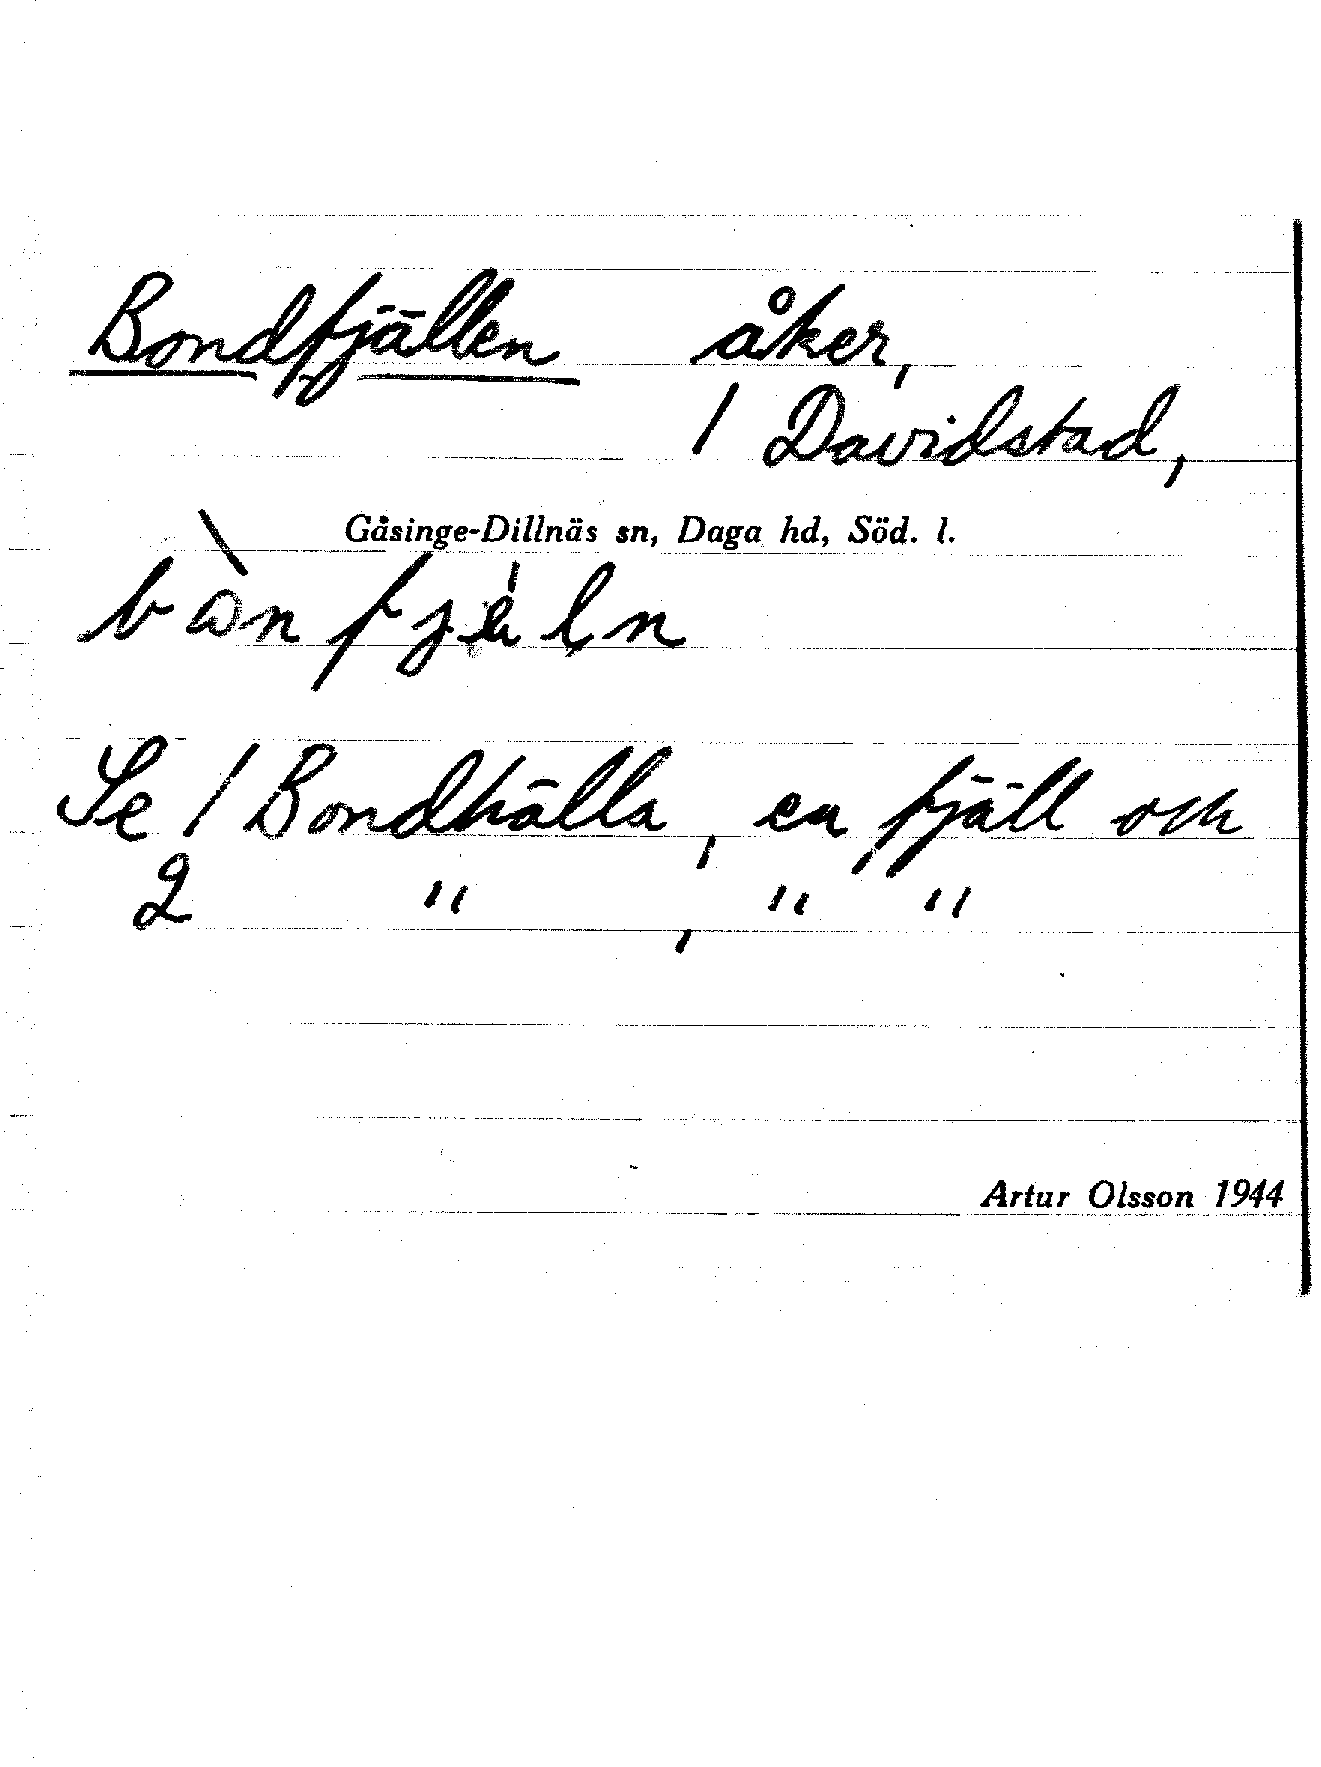 Bondfjällen åker,
1 Davidstad,
Gåsinge-Dillnäs sn, Daga hd, Söd. l.
Se 1 Bondhälla, en fjäll och
2 " , " "
Artur Olsson 1944